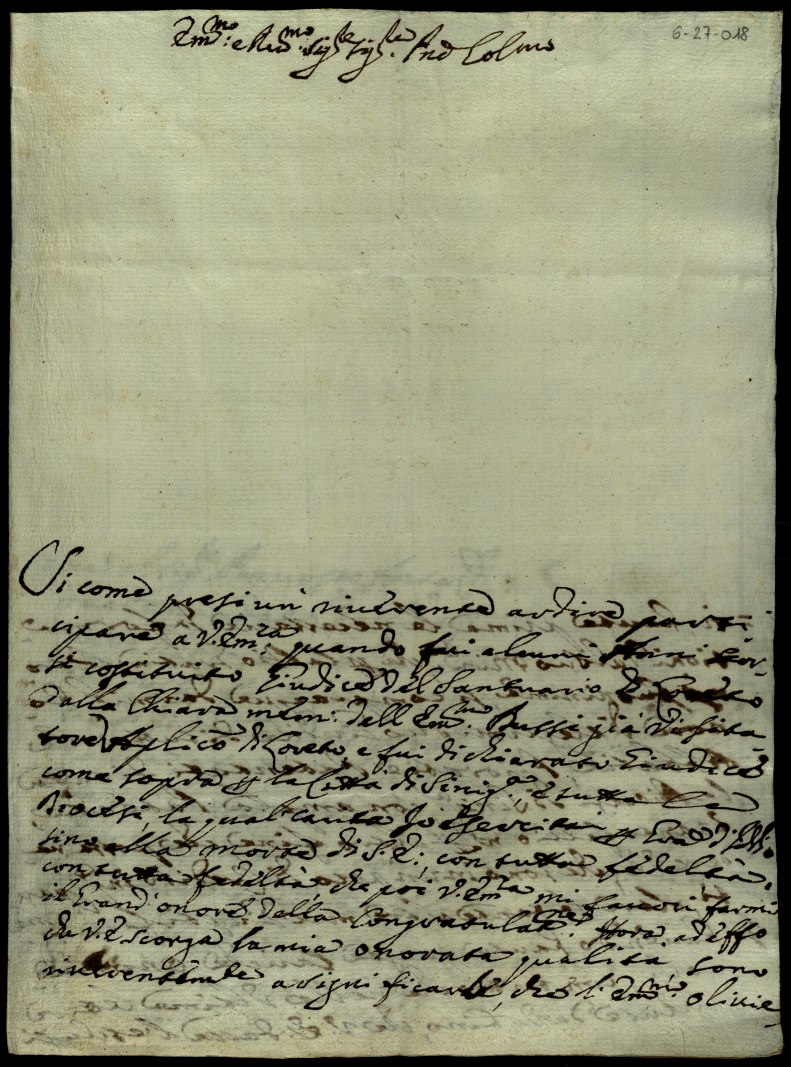 6-27-018
Em.mo e Rev.mo Sig.re Sig.re Prnē Colmo
Si come presi un riverente ardire parti
cipare a V. Em.za quando fui alcuni Anni
costituito Giudice del Santuario di Loreto
dalla Chiara mem: dell'Em.mo Bussi già Visita
tore Aplico di Loreto e fui dichiarato Giudice
come sopra p la Città di Sinig.a, e tutta la
Diocesi, la qual carica Io esercitai p
sino alla morte di S. E: con tutta fedeltà.
con tutta fedeltà che poi V. Em.za mi favorì farmi
il Grand'onore della Congratulat.ne Hora adesso
che V. E scorga la mia onorata qualità, sono
riverentem.te a significarle, che l'Em.mo Olivie